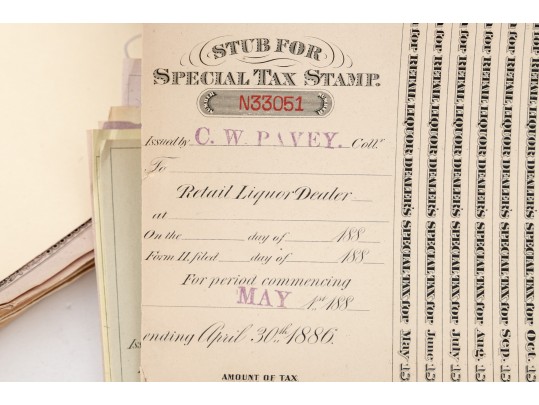 STUB FOR
SPECIAL TAX STAMP.
N33051
Issued by C. W. PAVEY. Coll.r
To
Retail Liquor Dealer
at
On the day of 188
Form 11, filed day of 188
For period commencing
MAY 1st 188
ending April 30th 1886.
AMOUNT OF TAX
for RETAIL LIQUOR DEALER'S SPECIAL TAX for May 15
for RETAIL LIQUOR DEALER'S SPECIAL TAX for June 15
for RETAIL LIQUOR DEALER'S SPECIAL TAX for July 15
for RETAIL LIQUOR DEALER'S SPECIAL TAX for Aug. 15
for RETAIL LIQUOR DEALER'S SPECIAL TAX for Sep. 15
for RETAIL LIQUOR DEALER'S SPECIAL TAX for Oct. 15